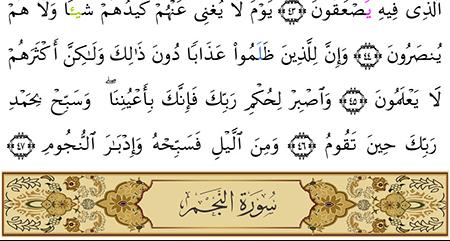 الَّذِى فِيهِ يَصْعَقُونَ ٤٣ يَوْمَ لَا يُغْنِى عَنْهُمْ كَيْدُهُمْ شَيْـًٔا وَلَا هُمْ
يُنصَرُونَ ٤٤ وَإِنَّ لِلَّذِينَ ظَلَمُواْ عَذَابًا دُونَ ذَٰلِكَ وَلَٰكِنَّ أَكْثَرَهُمْ
لَا يَعْلَمُونَ ٤٥ وَاصْبِرْ لِحُكْمِ رَبِّكَ فَإِنَّكَ بِأَعْيُنِنَاۖ وَسَبِّحْ بِحَمْدِ
رَبِّكَ حِينَ تَقُومُ ٤٦ وَمِنَ الَّيْلِ فَسَبِّحْهُ وَإِدْبَٰرَ النُّجُومِ ٤٧
سُورَةُ النَّجْمِ